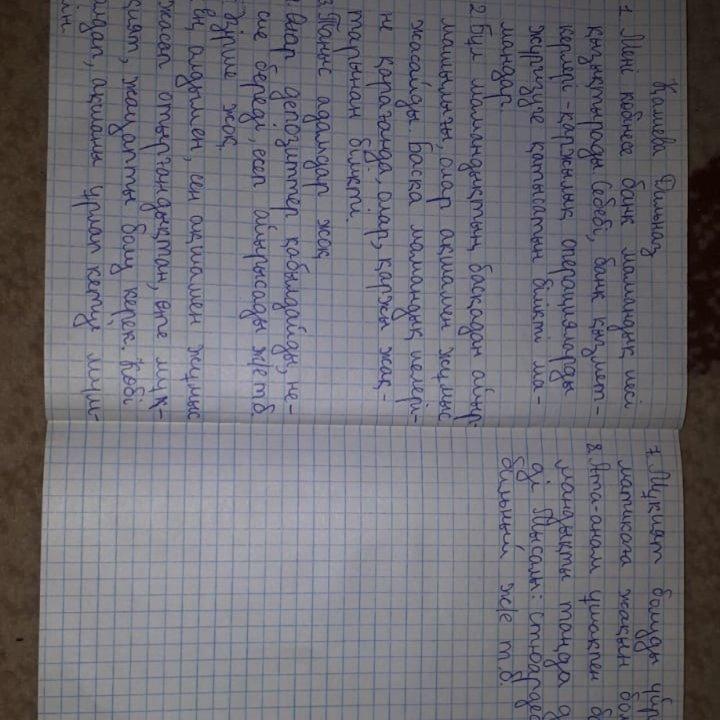 Камева Дильназ
1. Мені көбнесе банк мамандық иесі
қызықтырады. Себебі, банк қызмет-
керлері - қаржылық операцияларды
жүргізуге қатысатын білікті ма-
мандар.
2. Бұл мамандықтың басқадан айыр-
машылығы, олар ақшамен жұмыс
жасайды. Басқа мамандық иелері-
не қарағанда олар, қаржы жақ-
тарынан білікті.
3. Таныс адамдар жоқ
Олар депозиттер қабылдайды, не-
сие береді, есеп айырысады ж/е т.б
Әзірше жоқ
ең алдымен, сен ақшамен жұмыс
жасап отырғандықтан, өте мұқ-
ият, жауапты болу керек. Көбі
алдап, ақшаны ұрлап кетуі мүм-
кін.
7. Мұқият болуды үйр
математикаға жақын бол
8. Ата-анам ұшақпен б
мандықты таңда д
ді. Мысалы: стюардес
бильный ж/е т.б.